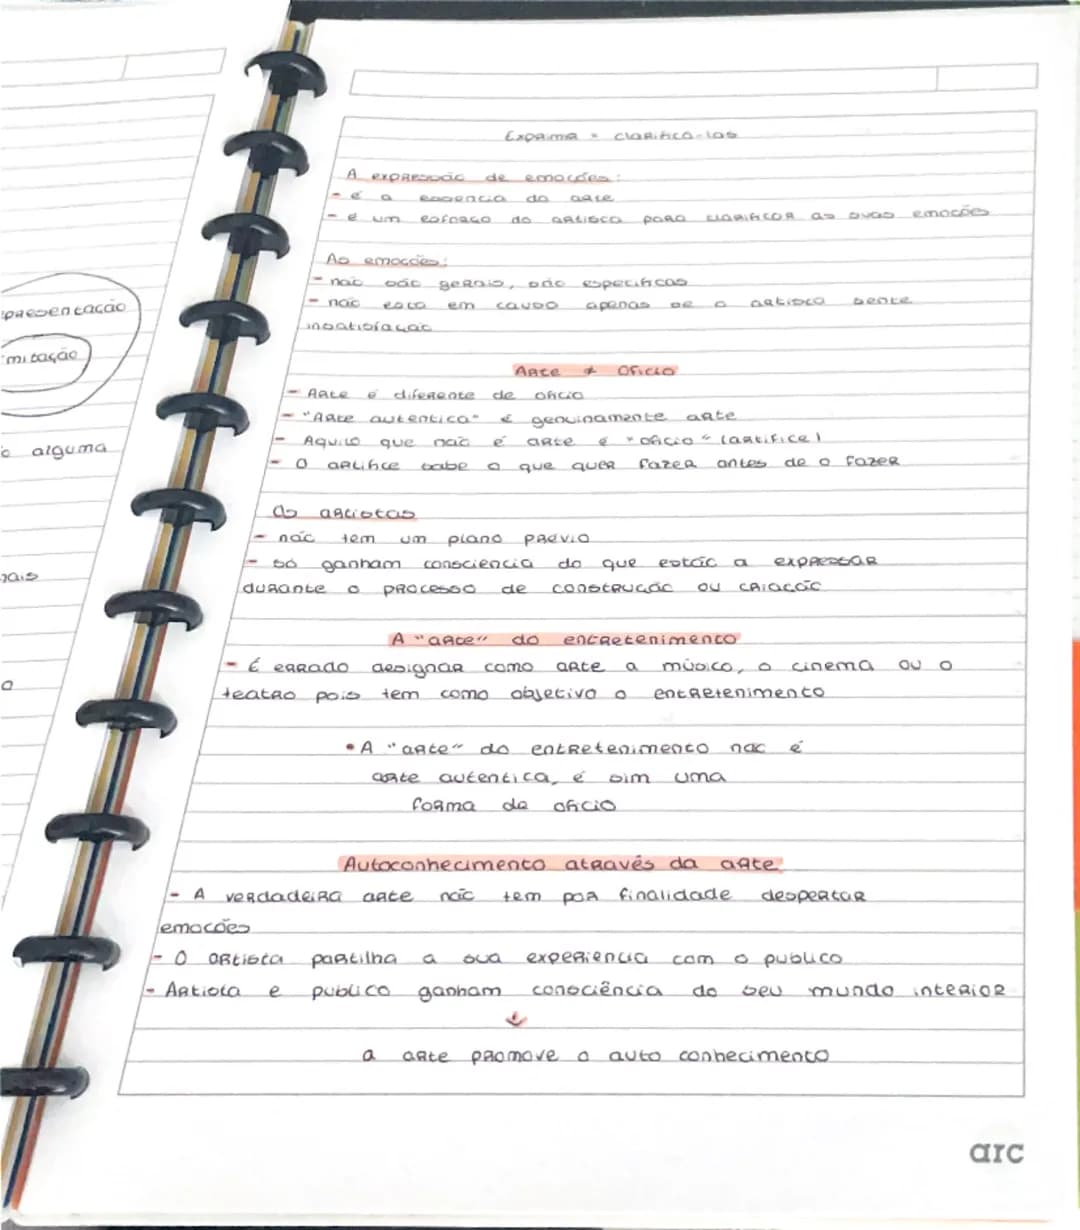 presentação
mitação
alguma
Exprimir = clarificá-las
A expressão de emoções:
- é a essencia da arte
- é um esforço do artista para clarificar as suas emoções
As emoções:
- não são gerais, são especificas
- não esta em causa apenas se o artista sente
insatisfação
Arte ≠ Oficio
- Arte é diferente de oficio
- "Arte autentica" é genuinamente arte
- Aquilo que não é arte é "oficio" (artifice)
- O artifice sabe o que quer fazer antes de o fazer
Os artistas
- não tem um plano prévio
- só ganham consciencia do que estão a expressar
durante o processo de construção ou criação
A "arte" do entretenimento
- É errado designar como arte a música, o cinema ou o
teatro pois tem como objetivo o entretenimento
• A "arte" do entretenimento não é
arte autentica, é sim uma
forma de oficio
Autoconhecimento através da arte
- A verdadeira arte não tem por finalidade despertar
emoções
- O artista partilha a sua experiencia com o publico
- Artista e publico ganham consciência do seu mundo interior
↓
a arte promove o auto conhecimento
arc